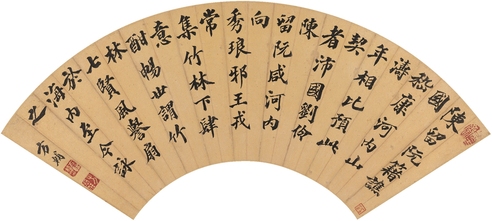 陳留阮籍譙
國
嵇康河內山
濤
年相比預此
契
者沛國劉伶
陳
留阮咸河內
向
秀琅邪王戎
常
集竹林下肆
意
酣暢世謂竹
林
七賢風譽扇
於
海內至今詠
之
方